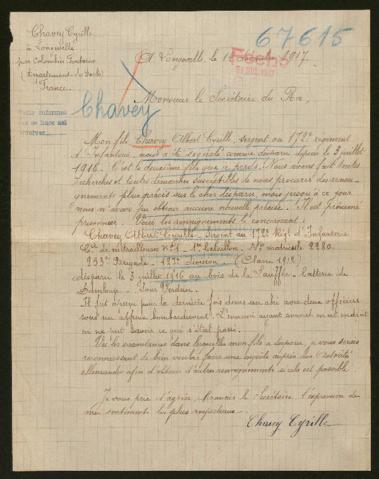 67615
Chavey Cyrille
à Longeville
par Colombier Fontaine
(Département du Doubs)
France.
A Longeville, le 1 1917.
Chavey
Monsieur le Secrétaire du Roi,
Mon fils Chavey Albert Cyrille, sergent au 172e régiment
d'Infanterie nous a été signalé comme disparu depuis le 3 juillet
1916. C'est le deuxième fils que je perds. Nous avons fait toutes
recherches et toutes démarches susceptibles de nous procurer des rensei-
gnements plus précis sur le cher disparu, mais jusqu'à ce jour
nous n'avons pu obtenir aucune nouvelle précise. Il est présumé
prisonnier. Voici les renseignements le concernant:
Chavey Albert Cyrille, sergent au 172e Régt d'Infanterie
Cie de mitrailleuses No 1, 1er bataillon. No matricule 2280.
Brigade. division (Classe 1912)
disparu le 3 juillet 1916 au bois de la Laufée. batterie de
Damloup. Sous Verdun.
Il fut aperçu pour la dernière fois dans un abri avec deux officiers
sous un affreux bombardement. L'ennemi ayant avancé en cet endroit
on ne put savoir ce qui s'était passé.
Vu les circonstances dans lesquelles mon fils a disparu, je vous serais
reconnaissant de bien vouloir faire une enquête auprès des autorités
allemandes afin d'obtenir d'autres renseignements si cela est possible.
Je vous prie d'agréer, Monsieur le Secrétaire, l'expression de
mes sentiments les plus respectueux.
Chavey Cyrille